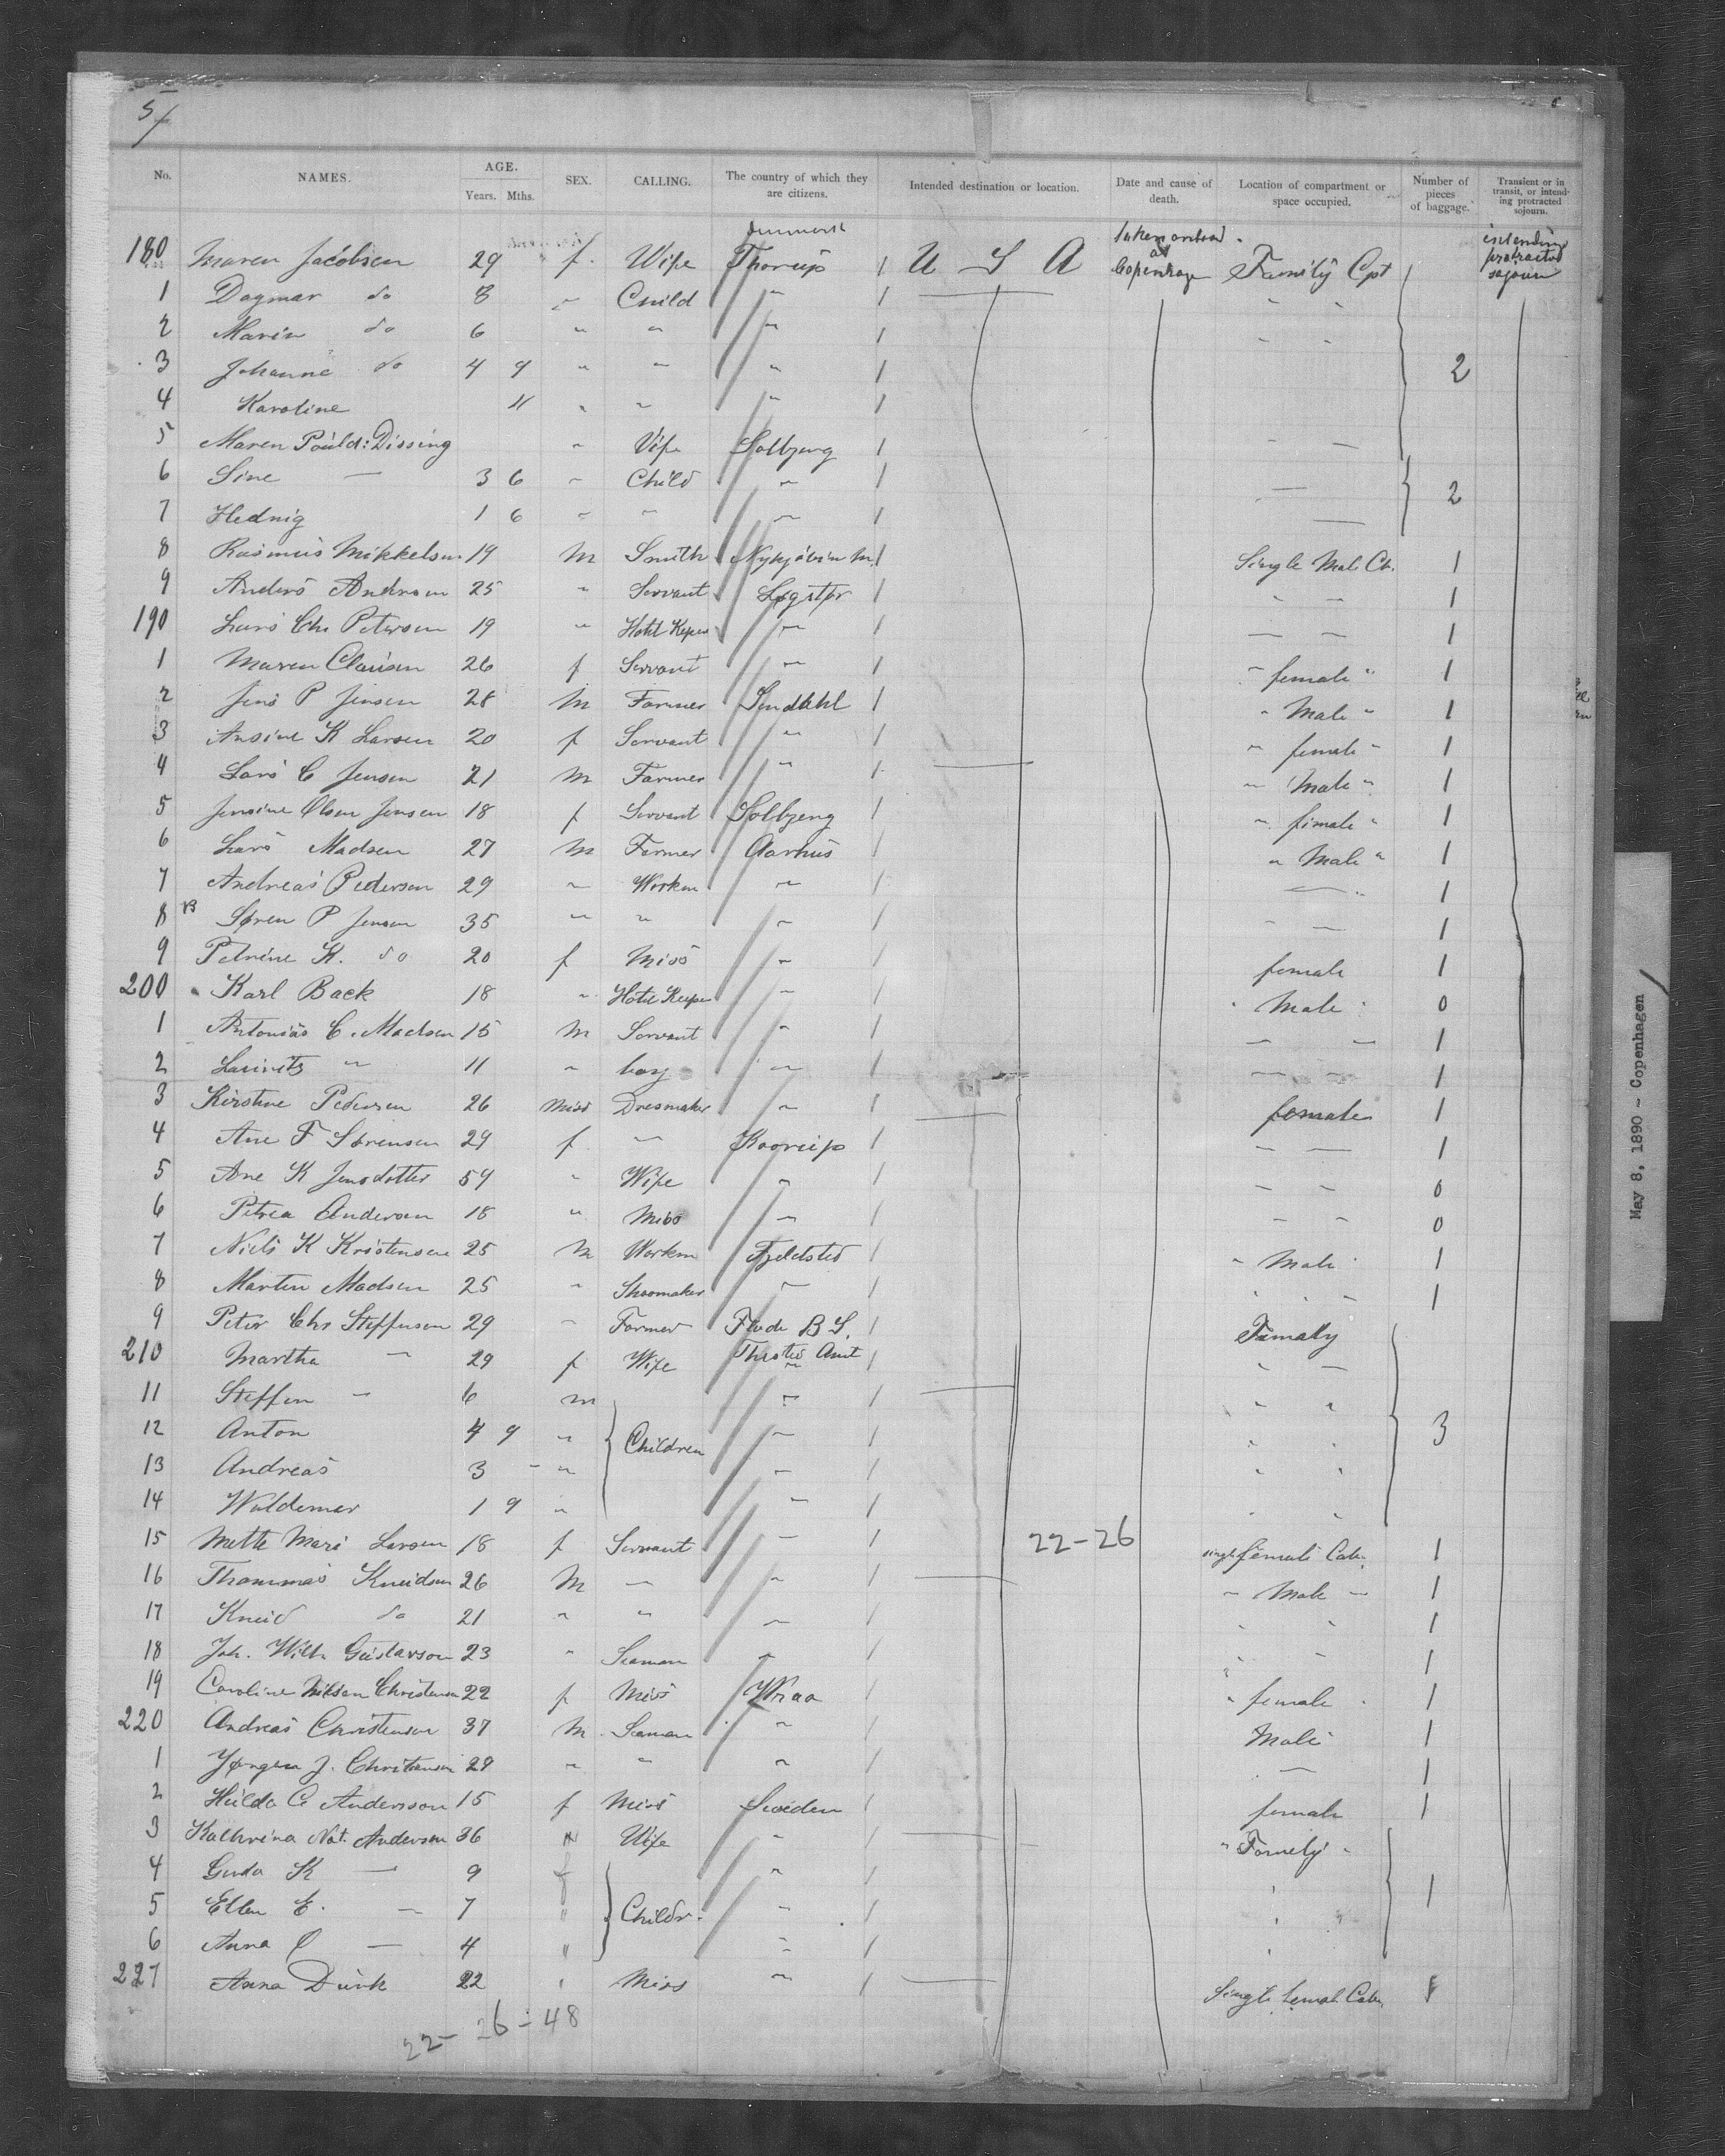 5/
No. NAMES. AGE. Years. Mths. SEX. CALLING. The country of which they are citizens. Intended destination or location. Date and cause of death. Location of compartment or space occupied. Number of pieces of baggage. Transient or in transit, or intending protracted sojourn.
180 Maren Jacobsen 29 f. Wife Denmark Thorup / U S A taken onboard at Copenhage Family Cpt intending protracted sojourn
1 Dagmar do 8 " Child " /
2 Marin do 6 " " " /
3 Johanne do 4 9 " " " / 2
4 Karoline 11 " " " /
5 Maren Pould: Dissing " Vife Solbjerg /
6 Sine — 3 6 " Child " / 2
7 Hedvig 1 6 " " " /
8 Rasmus Mikkelsen 19 M Smith Nykjöbin M. / Single Male Cb. 1
9 Anders Andersen 25 " Servant Løgstør / " " 1
190 Lars Chr Petersen 19 " Hotel Keper " / " " 1
1 Maren Clausen 26 f Servant " / " female " 1
2 Jens P Jensen 28 M Farmer / " Male " 1
3 Ansine K Larsen 20 f Servant " / " female " 1
4 Lars C Jensen 21 M Farmer " / " Male " 1
5 Jensine Olsen Jensen 18 f Servant Solbjerg / " female " 1
6 Lars Madsen 27 M Farmer Aarhus / " Male " 1
7 Andreas Pedersen 29 " Workm " / " " 1
8 Søren P Jensen 35 " " " / " " 1
9 Petrine K. do 20 f Miss " / female 1
200 Karl Back 18 " Hotel Keeper " / " Male " 0
1 Antonius C. Madsen 15 M Servant " / " " 1
2 Lauritz " 11 " boy " / " " 1
3 Kirstine Pedersen 26 Miss Dresmaker " / female 1
4 Ane F Sørensen 29 f " Koorup / " " 1
5 Ane K Jensdotter 59 " Wife " / " " 0
6 Petrea Andersen 18 " Miss " / " " 0
7 Niels K Kristensen 25 M Workm Fjeldsted / " Male " 1
8 Martin Madsen 25 " Shoomaker " / " " 1
9 Peter Chr Steffensen 29 " Farmer Flode B S. / Famaly
210 Martha " 29 f Wife Thisted Amt / " "
11 Steffen " 6 m " / " "
12 Anton 4 9 " Children " / " " 3
13 Andreas 3 - " " / " "
14 Waldemar 1 9 " " / " "
15 Mette Mari Larsen 18 f Servant " / 22-26 single female Cab. 1
16 Thommas Knudsen 26 M " " / " Male " 1
17 Knud do 21 " " " / " " 1
18 Joh. Wilh Gustavson 23 " Seaman " / " " 1
19 Caroline Nilsen Christensen 22 f Miss Wraa / " female " 1
220 Andreas Christensen 37 M. Seaman " / Male 1
1 Jørgen J. Christensen 29 " " " / " 1
2 Hulda C Andersson 15 f Miss Sweden / female 1
3 Kathrina Nat. Andersen 36 " Wife " / " Famely "
4 Gerda K — 9 f " / "
5 Ellen E. — 7 " Childr. " / " 1
6 Anna C — 4 " " / "
227 Anna Dunk 22 " Miss " / Single female Cab. 1
22 - 26 = 48
May 8, 1890 - Copenhagen